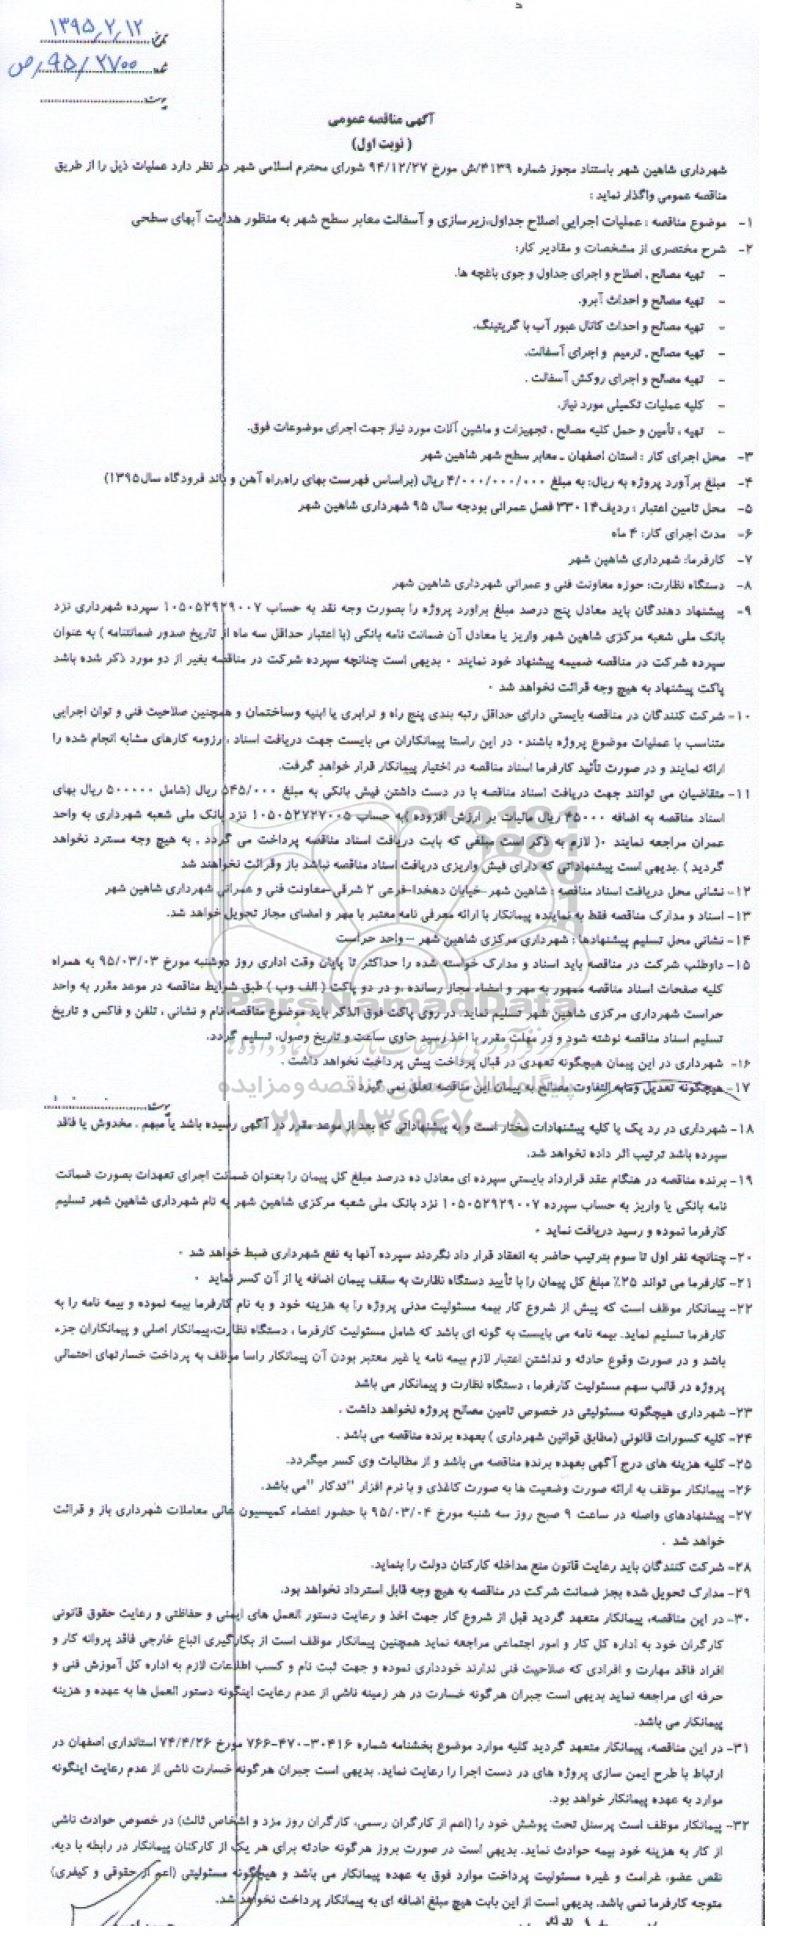 تاریخ ۱۳۹۵٫۲٫۱۲
شماره ۹۵/۲۷۰۰/ص
پیوست
آگهی مناقصه عمومی
( نوبت اول)
شهرداری شاهین شهر باستناد مجوز شماره ۴۱۳۹/ش مورخ ۹۴/۱۲/۲۷ شورای محترم اسلامی شهر در نظر دارد عملیات ذیل را از طریق
مناقصه عمومی واگذار نماید :
۱- موضوع مناقصه : عملیات اجرایی اصلاح جداول،زیرسازی و آسفالت معابر سطح شهر به منظور هدایت آبهای سطحی
۲- شرح مختصری از مشخصات و مقادیر کار:
- تهیه مصالح , اصلاح و اجرای جداول و جوی باغچه ها.
- تهیه مصالح و احداث آبرو.
- تهیه مصالح و احداث کانال عبور آب با گریتینگ.
- تهیه مصالح , ترمیم و اجرای آسفالت.
- تهیه مصالح و اجرای روکش آسفالت .
- کلیه عملیات تکمیلی مورد نیاز.
- تهیه ، تأمین و حمل کلیه مصالح ، تجهیزات و ماشین آلات مورد نیاز جهت اجرای موضوعات فوق.
۳- محل اجرای کار : استان اصفهان ـ معابر سطح شهر شاهین شهر
۴- مبلغ برآورد پروژه به ریال: به مبلغ ۴/۰۰۰/۰۰۰/۰۰۰ ریال (براساس فهرست بهای راه،راه آهن و باند فرودگاه سال۱۳۹۵)
۵- محل تامین اعتبار : ردیف۳۳۰۱۴ فصل عمرانی بودجه سال ۹۵ شهرداری شاهین شهر
۶- مدت اجرای کار: ۴ ماه
۷- کارفرما: شهرداری شاهین شهر
۸- دستگاه نظارت: حوزه معاونت فنی و عمرانی شهرداری شاهین شهر
۹- پیشنهاد دهندگان باید معادل پنج درصد مبلغ برآورد پروژه را بصورت وجه نقد به حساب ۱۰۵۰۵۲۹۲۹۰۰۷ سپرده شهرداری نزد
بانک ملی شعبه مرکزی شاهین شهر واریز یا معادل آن ضمانت نامه بانکی (با اعتبار حداقل سه ماه از تاریخ صدور ضمانتنامه ) به عنوان
سپرده شرکت در مناقصه ضمیمه پیشنهاد خود نمایند ۰ بدیهی است چنانچه سپرده شرکت در مناقصه بغیر از دو مورد ذکر شده باشد
پاکت پیشنهاد به هیچ وجه قرائت نخواهد شد ۰
۱۰- شرکت کنندگان در مناقصه بایستی دارای حداقل رتبه بندی پنج راه و ترابری یا ابنیه وساختمان و همچنین صلاحیت فنی و توان اجرایی
متناسب با عملیات موضوع پروژه باشند۰ در این راستا پیمانکاران می بایست جهت دریافت اسناد ، رزومه کارهای مشابه انجام شده را
ارائه نمایند و در صورت تأئید کارفرما اسناد مناقصه در اختیار پیمانکار قرار خواهد گرفت.
۱۱- متقاضیان می توانند جهت دریافت اسناد مناقصه با در دست داشتن فیش بانکی به مبلغ ۵۴۵/۰۰۰ ریال (شامل ۵۰۰۰۰۰ ریال بهای
اسناد مناقصه به اضافه ۴۵۰۰۰ ریال مالیات بر ارزش افزوده )به حساب ۱۰۵۰۵۲۷۲۷۰۰۵ نزد بانک ملی شعبه شهرداری به واحد
عمران مراجعه نمایند ۰( لازم به ذکر است مبلغی که بابت دریافت اسناد مناقصه پرداخت می گردد , به هیچ وجه مسترد نخواهد
گردید ) .بدیهی است پیشنهاداتی که دارای فیش واریزی دریافت اسناد مناقصه نباشد باز وقرائت نخواهند شد
۱۲- نشانی محل دریافت اسناد مناقصه : شاهین شهر –خیابان دهخدا-فرعی ۲ شرقی-معاونت فنی و عمرانی شهرداری شاهین شهر
۱۳- اسناد و مدارک مناقصه فقط به نماینده پیمانکار با ارائه معرفی نامه معتبر با مهر و امضای مجاز تحویل خواهد شد.
۱۴- نشانی محل تسلیم پیشنهادها : شهرداری مرکزی شاهین شهر – واحد حراست
۱۵- داوطلب شرکت در مناقصه باید اسناد و مدارک خواسته شده را حداکثر تا پایان وقت اداری روز دوشنبه مورخ ۹۵/۰۳/۰۳ به همراه
کلیه صفحات اسناد مناقصه ممهور به مهر و امضاء مجاز رسانده ,و در دو پاکت ( الف وب ) طبق شرایط مناقصه در موعد مقرر به واحد
حراست شهرداری مرکزی شاهین شهر تسلیم نماید. در روی پاکت فوق الذکر باید موضوع مناقصه، نام و نشانی ، تلفن و فاکس و تاریخ
تسلیم اسناد مناقصه نوشته شود و در مهلت مقرر با اخذ رسید حاوی ساعت و تاریخ وصول، تسلیم گردد.
۱۶- شهرداری در این پیمان هیچگونه تعهدی در قبال پرداخت پیش پرداخت نخواهد داشت .
۱۷- هیچگونه تعدیل ومابه التفاوت مصالح به پیمان این مناقصه تعلق نمی گیرد
ParsNamadData
پایگاه اطلاع رسانی مناقصه و مزایده
۰۲۱-۸۸۳۴۹۶۷۰-۵
پیوست
۱۸- شهرداری در رد یک یا کلیه پیشنهادات مختار است و به پیشنهاداتی که بعد از موعد مقرر در آگهی رسیده باشد یا مبهم ، مخدوش یا فاقد
سپرده باشد ترتیب اثر داده نخواهد شد.
۱۹- برنده مناقصه در هنگام عقد قرارداد بایستی سپرده ای معادل ده درصد مبلغ کل پیمان را بعنوان ضمانت اجرای تعهدات بصورت ضمانت
نامه بانکی یا واریز به حساب سپرده ۱۰۵۰۵۲۹۲۹۰۰۷ نزد بانک ملی شعبه مرکزی شاهین شهر به نام شهرداری شاهین شهر تسلیم
کارفرما نموده و رسید دریافت نماید ۰
۲۰- چنانچه نفر اول تا سوم بترتیب حاضر به انعقاد قرار داد نگردند سپرده آنها به نفع شهرداری ضبط خواهد شد ۰
۲۱- کارفرما می تواند ۲۵٪ مبلغ کل پیمان را با تأیید دستگاه نظارت به سقف پیمان اضافه یا از آن کسر نماید ۰
۲۲- پیمانکار موظف است که پیش از شروع کار بیمه مسئولیت مدنی پروژه را به هزینه خود و به نام کارفرما بیمه نموده و بیمه نامه را به
کارفرما تسلیم نماید. بیمه نامه می بایست به گونه ای باشد که شامل مسئولیت کارفرما ، دستگاه نظارت،پیمانکار اصلی و پیمانکاران جزء
باشد و در صورت وقوع حادثه و نداشتن اعتبار لازم بیمه نامه یا غیر معتبر بودن آن پیمانکار راسا موظف به پرداخت خسارتهای احتمالی
پروژه در قالب سهم مسئولیت کارفرما ، دستگاه نظارت و پیمانکار می باشد
۲۳- شهرداری هیچگونه مسئولیتی در خصوص تامین مصالح پروژه نخواهد داشت .
۲۴- کلیه کسورات قانونی (مطابق قوانین شهرداری ) بعهده برنده مناقصه می باشد .
۲۵- کلیه هزینه های درج آگهی بعهده برنده مناقصه می باشد و از مطالبات وی کسر میگردد.
۲۶- پیمانکار موظف به ارائه صورت وضعیت ها به صورت کاغذی و با نرم افزار "تدکار "می باشد.
۲۷- پیشنهادهای واصله در ساعت ۹ صبح روز سه شنبه مورخ ۹۵/۰۳/۰۴ با حضور اعضاء کمیسیون عالی معاملات شهرداری باز و قرائت
خواهد شد .
۲۸- شرکت کنندگان باید رعایت قانون منع مداخله کارکنان دولت را بنماید.
۲۹- مدارک تحویل شده بجز ضمانت شرکت در مناقصه به هیچ وجه قابل استرداد نخواهد بود.
۳۰- در این مناقصه، پیمانکار متعهد گردید قبل از شروع کار جهت اخذ و رعایت دستور العمل های ایمنی و حفاظتی و رعایت حقوق قانونی
کارگران خود به اداره کل کار و امور اجتماعی مراجعه نماید همچنین پیمانکار موظف است از بکارگیری اتباع خارجی فاقد پروانه کار و
افراد فاقد مهارت و افرادی که صلاحیت فنی ندارند خودداری نموده و جهت ثبت نام و کسب اطلاعات لازم به اداره کل آموزش فنی و
حرفه ای مراجعه نماید بدیهی است جبران هرگونه خسارت در هر زمینه ناشی از عدم رعایت اینگونه دستور العمل ها به عهده و هزینه
پیمانکار می باشد.
۳۱- در این مناقصه، پیمانکار متعهد گردید کلیه موارد موضوع بخشنامه شماره ۳۰۴۱۶-۴۷۰-۷۶۶ مورخ ۷۴/۴/۲۶ استانداری اصفهان در
ارتباط با طرح ایمن سازی پروژه های در دست اجرا را رعایت نماید. بدیهی است جبران هرگونه خسارت ناشی از عدم رعایت اینگونه
موارد به عهده پیمانکار خواهد بود.
۳۲- پیمانکار موظف است پرسنل تحت پوشش خود را (اعم از کارگران رسمی، کارگران روز مزد و اشخاص ثالث) در خصوص حوادث ناشی
از کار به هزینه خود بیمه حوادث نماید. بدیهی است در صورت بروز هرگونه حادثه برای هر یک از کارکنان پیمانکار در رابطه با دیه،
نقص عضو، غرامت و غیره مسئولیت پرداخت موارد فوق به عهده پیمانکار می باشد و هیچگونه مسئولیتی (اعم از حقوقی و کیفری)
متوجه کارفرما نمی باشد. بدیهی است از این بابت هیچ مبلغ اضافه ای به پیمانکار پرداخت نخواهد شد.